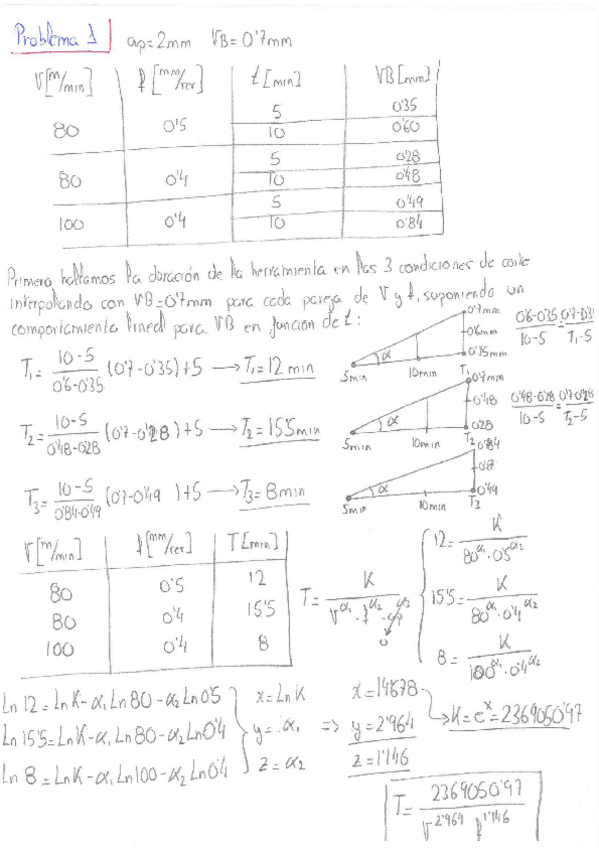 Problema 1 ap=2mm VB=0'7mm
V[m/min] f[mm/rev] t[min] VB[mm]
80 0'5 5 0'35
10 0'60
80 0'4 5 0'28
10 0'48
100 0'4 5 0'49
10 0'84
Primero hallamos la duración de la herramienta en las 3 condiciones de corte
interpolando con VB=0'7mm para cada pareja de V y f, suponiendo un
comportamiento lineal para VB en función de t:
T₁= 10-5/0'6-0'35 (0'7-0'35)+5 → T₁=12 min
5min 10min T₁ α 0'7mm 0'6mm 0'35mm
0'6-0'35/10-5 = 0'7-0'35/T₁-5
T₂= 10-5/0'48-0'28 (0'7-0'28)+5 → T₂=15'5min
5min 10min T₂ α 0'7mm 0'48 0'28
0'48-0'28/10-5 = 0'7-0'28/T₂-5
T₃= 10-5/0'84-0'49 (0'7-0'49)+5 → T₃=8min
5min 10min T₃ α 0'84 0'7 0'49
V[m/min] f[mm/rev] T[min]
80 0'5 12
80 0'4 15'5
100 0'4 8
T= K/V^α₁·f^α₂·ap^α₃ 0
12= K/80^α₁·0'5^α₂
15'5= K/80^α₁·0'4^α₂
8= K/100^α₁·0'4^α₂
Ln 12=LnK-α₁Ln80-α₂Ln0'5
Ln 15'5=LnK-α₁Ln80-α₂Ln0'4
Ln 8=LnK-α₁Ln100-α₂Ln0'4
x=LnK
y=α₁
z=α₂
⇒
x=14'678
y=2'964
z=1'146
→ K=eˣ=2369050'97
T= 2369050'97/V^2'964 f^1'146